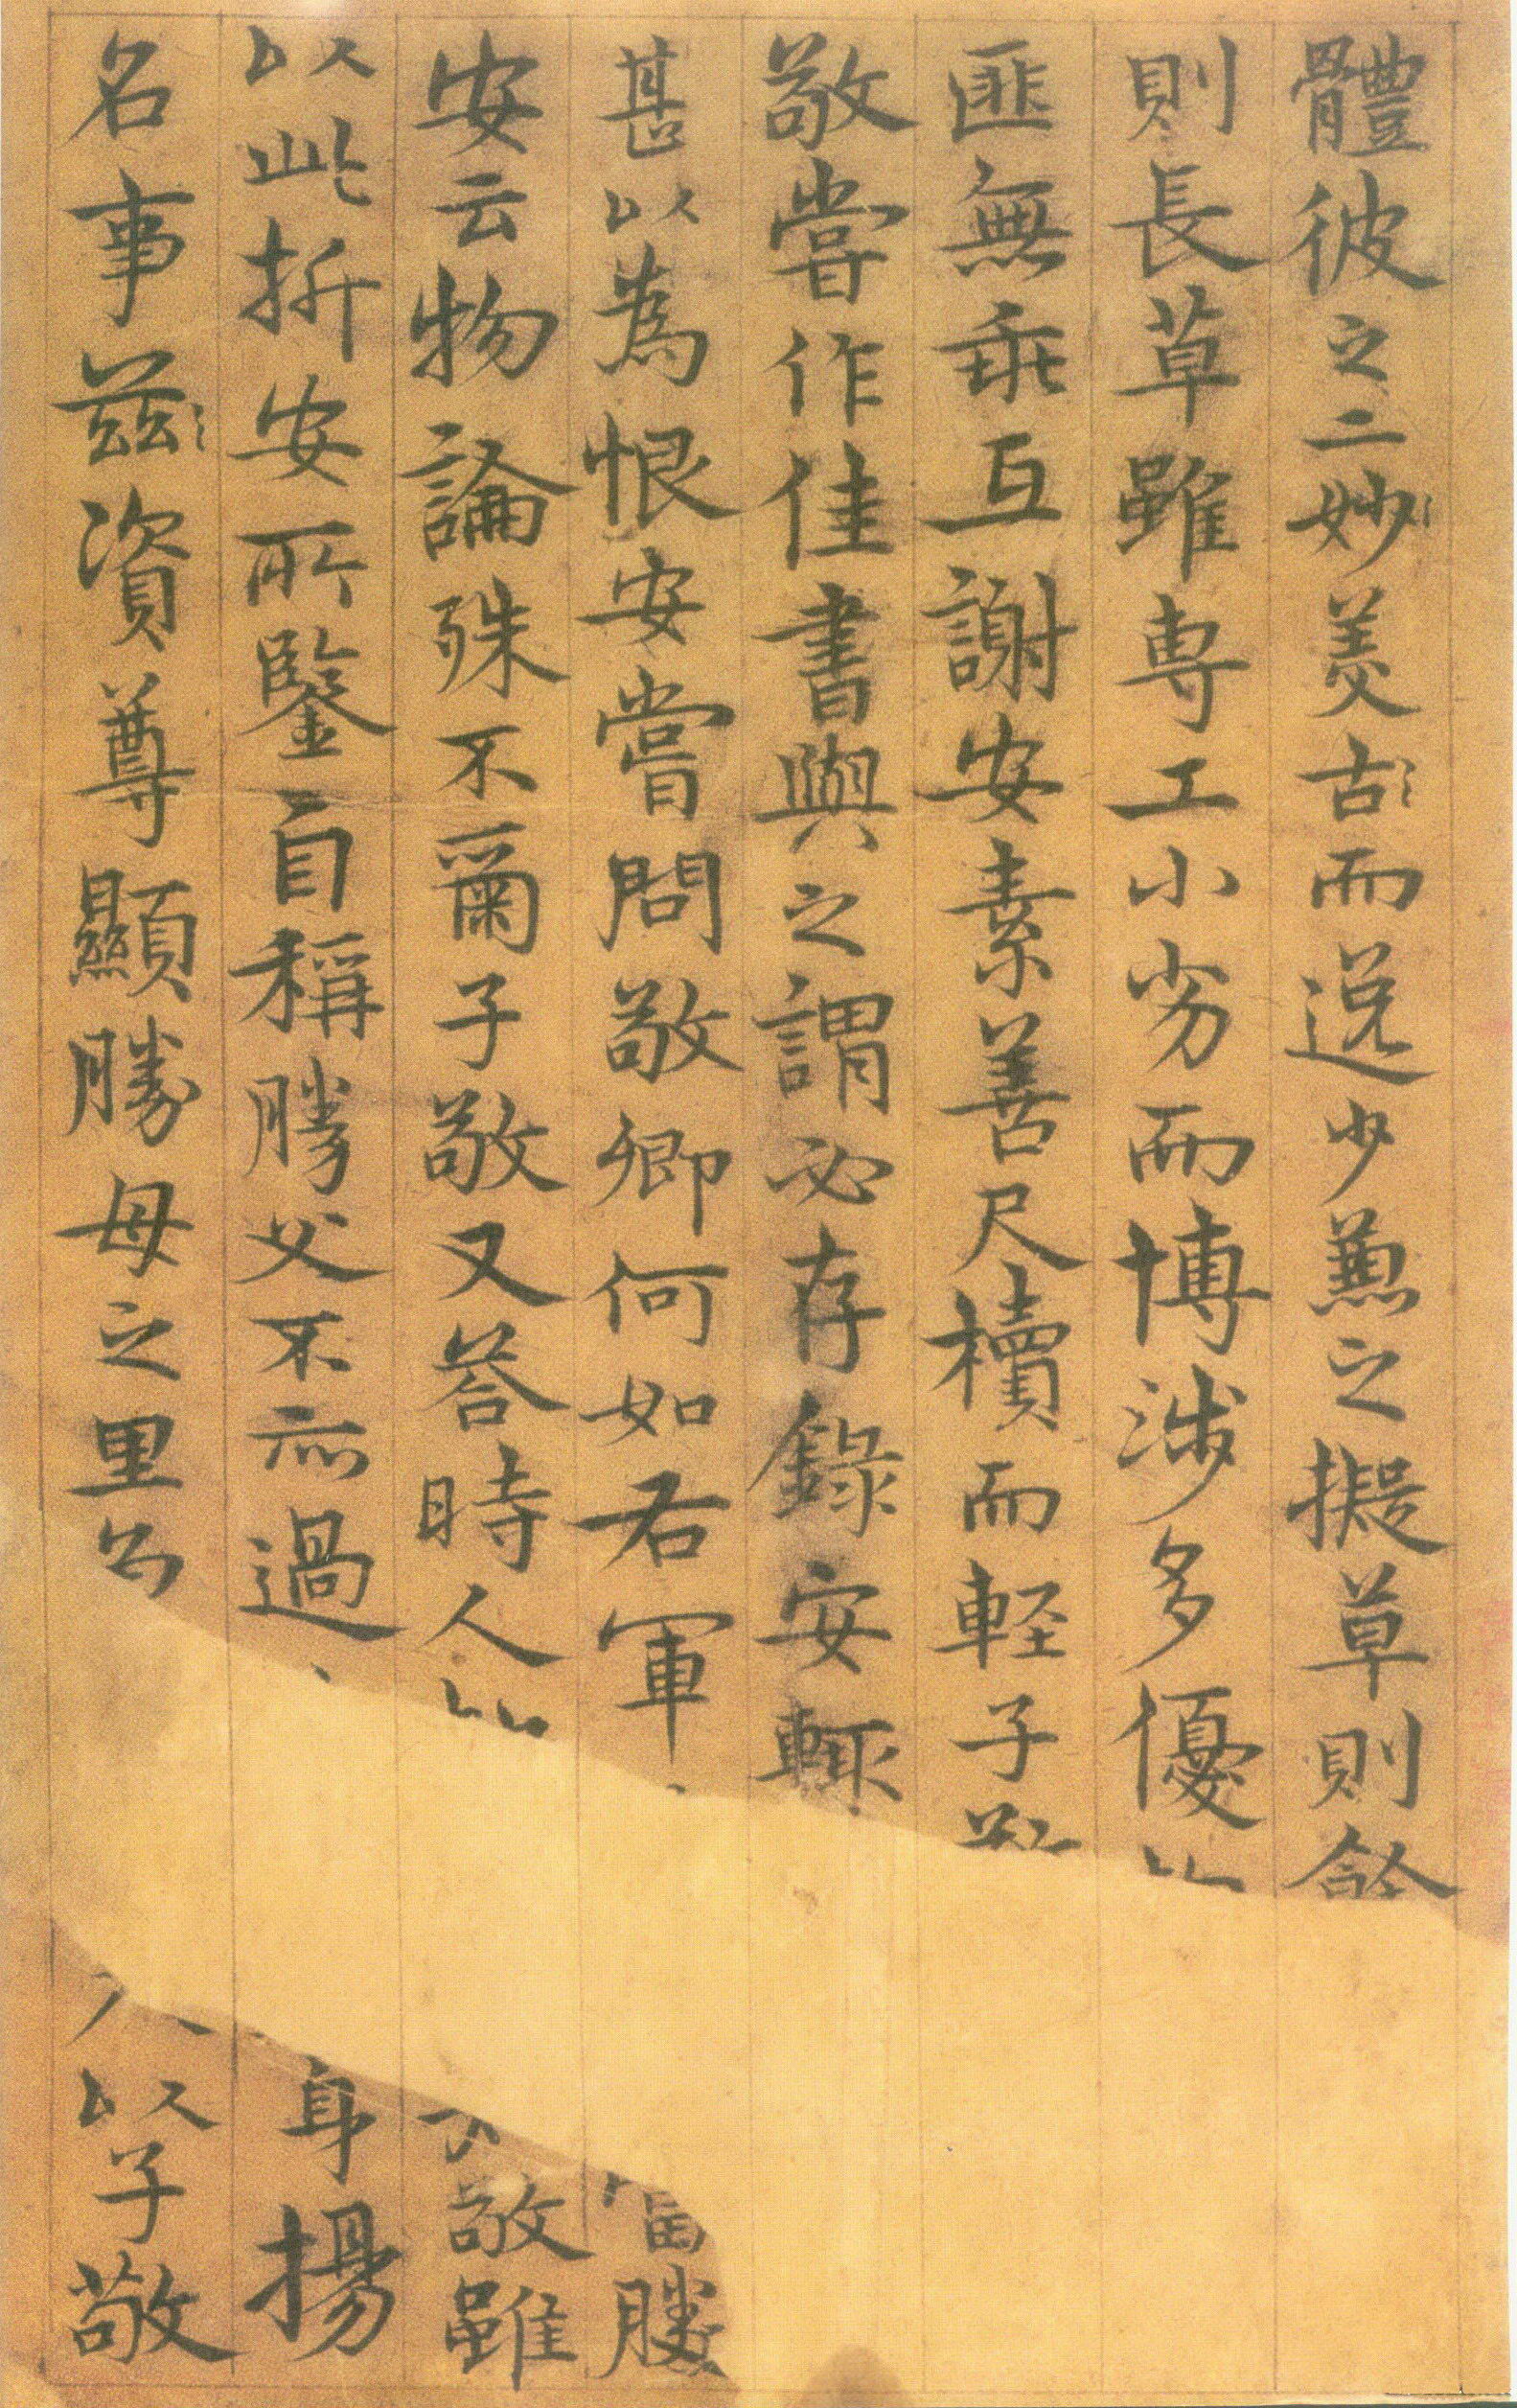 體彼之二妙美古而逸少兼之擬草則餘
則長草雖専工小劣而博涉多優
匪無乖互謝安素善尺牘而軽子
敬嘗作佳書與之謂必存錄安輙
甚以為恨安嘗問敬卿何如右軍 當勝
安云物論殊不爾子敬又荅時人 敬雖
以此折安所鑒自稱勝父不亦過 身揚
名事茲資尊顯勝母之里 以子敬